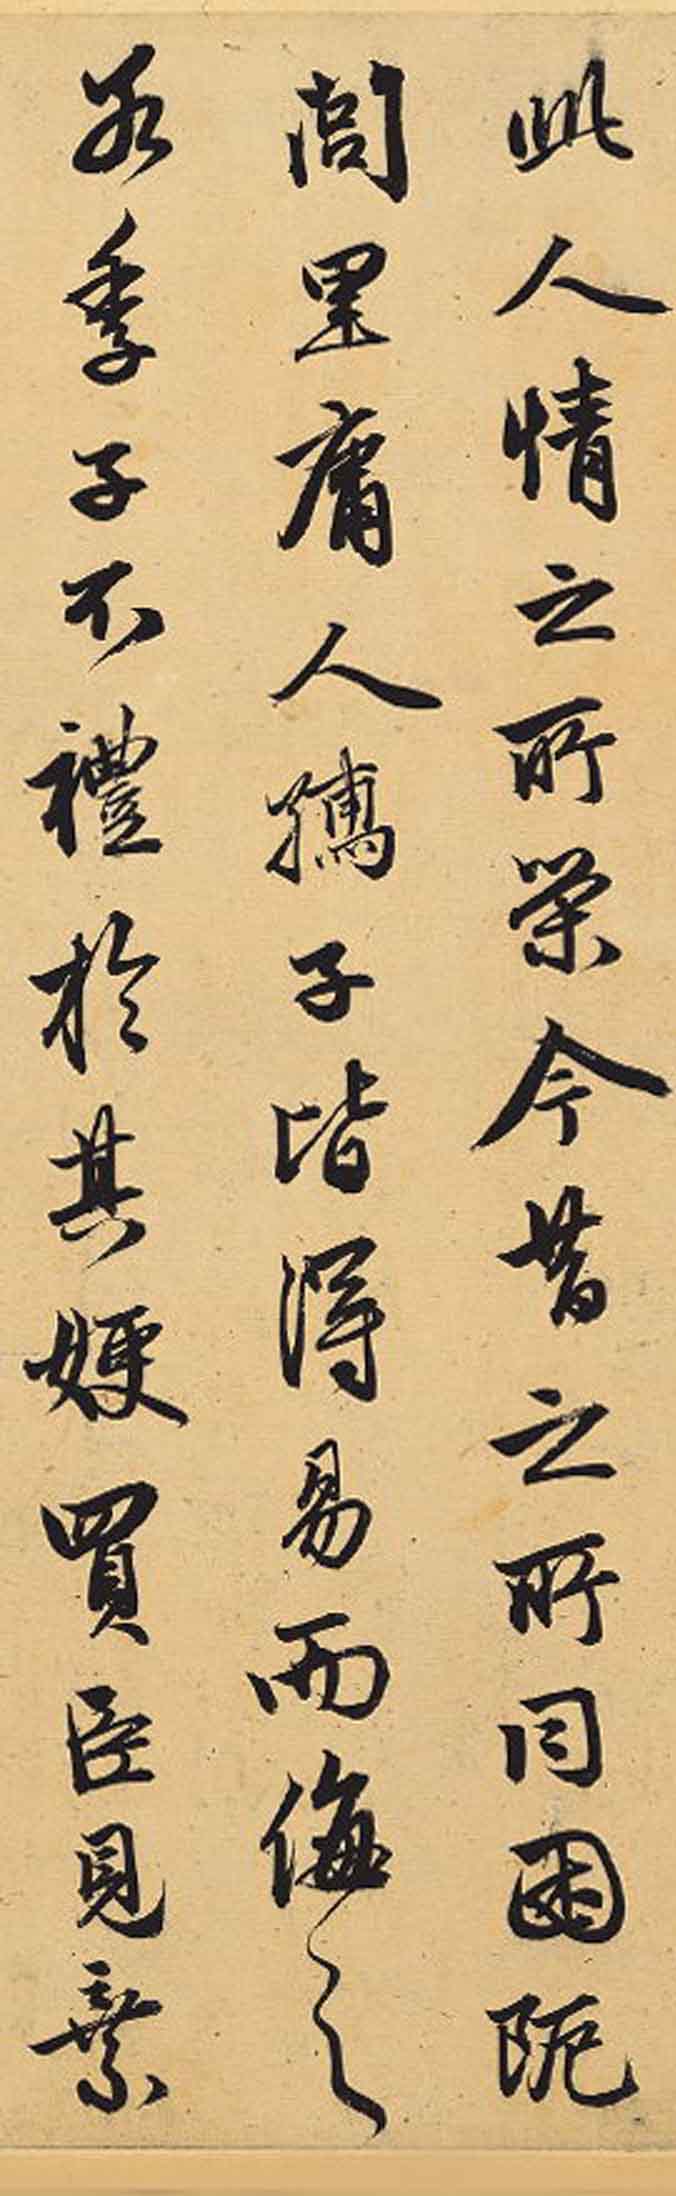 此人情之所榮今昔之所同困阨
閭里庸人孺子皆得易而侮之
若季子不禮於其嫂買臣見棄